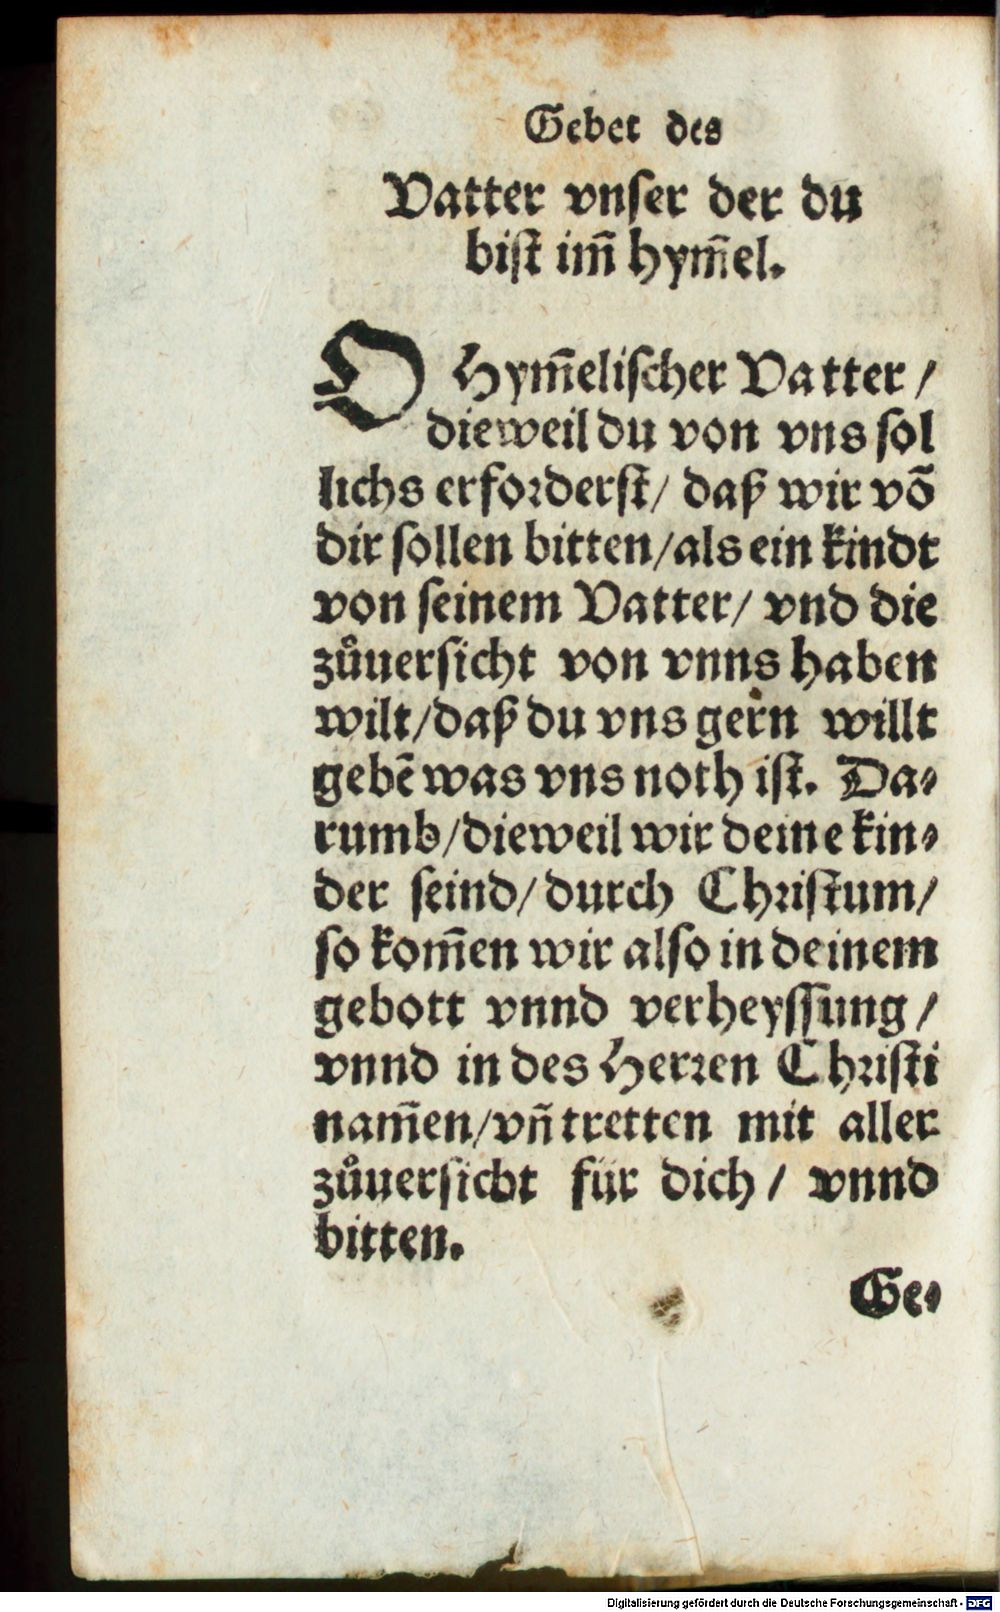 Gebet des
Vatter vnser der du
bist im̄ hym̄el.
O Hym̄elischer Vatter /
dieweil du von vns sol
lichs erforderst / daß wir võ
dir sollen bitten / als ein kindt
von seinem Vatter / vnd die
zůuersicht von vnns haben
wilt / daß du vns gern willt
gebē was vns noth ist. Da⸗
rumb / dieweil wir deine kin⸗
der seind / durch Christum /
so kom̄en wir also in deinem
gebott vnnd verheyssung /
vnnd in des Herren Christi
nam̄en / vn̄ tretten mit aller
zůuersicht für dich / vnnd
bitten.
Ge⸗
Digitalisierung gefördert durch die Deutsche Forschungsgemeinschaft - DFG